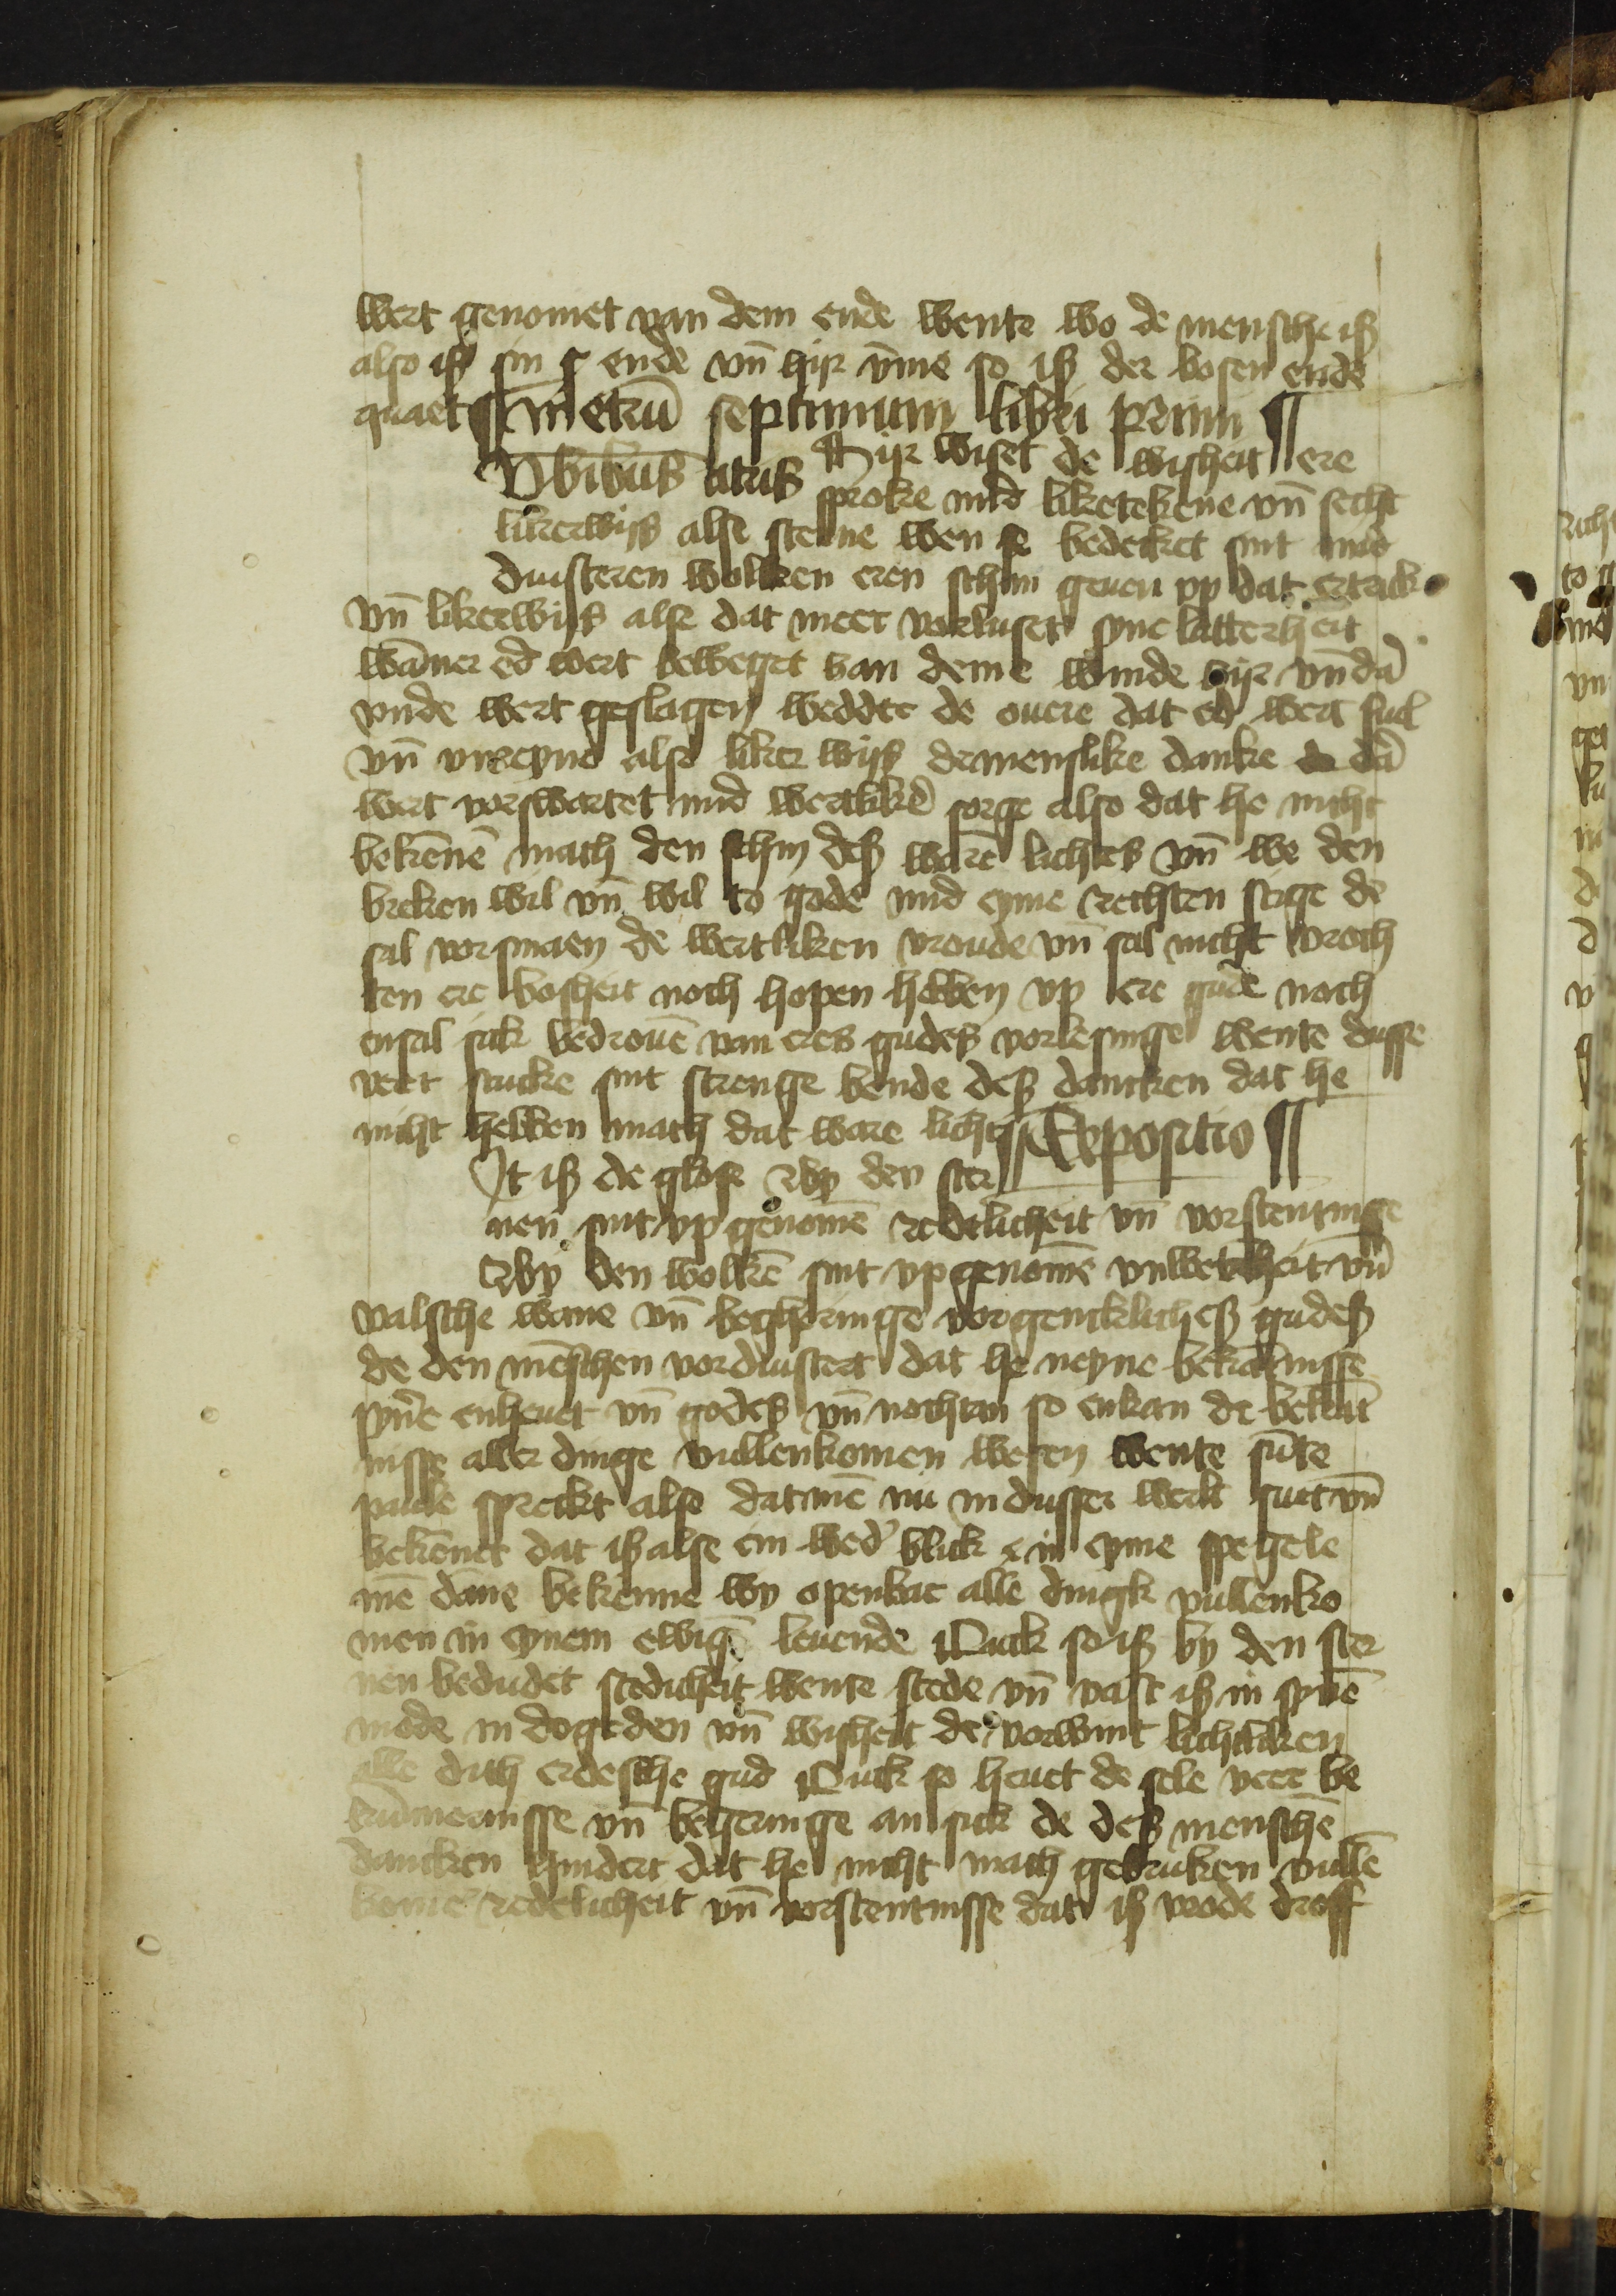 wert genomet van dem ende wente wo de mensche iß
also iß sin ende vn̄ hijr v̄me so iß der bosen ende
quaet metrū septimum libri primi
Vbibus atris Hijr wiset de wisheit ere
sproke mid liketekene vn̄ secht
likerwijs alse sterne wen se bedecket sint mid
duisteren wolken eren schin geuen vp dat ertrick
vn̄ likerwijs alse dat meer vorluset syne latterheit
wāner ed wert beweget van deme winde hijr vn̄ dā
vnde wert geslagen wedder de ouere dat ed wert ful
vn̄ vnreyne alse liker wijs de menslike danke dā
wert vorswartet mid wertlikē sorge also dat he nicht
bekēnē mach den schin deß warē lichtes vn̄ we den
breken wil vn̄ wil to gode mid eyme rechten stige de
sal vorsmaen de wertliken vroude vn̄ sal nicht vroch
ten ere bosheit noch hopen hebben vp ere gude noch
ensal sick bedrouē van eres gudeß vorlesinge wente dusse
veer stucke sint strenge bende deß dancken dat he
nicht hebben mach dat ware licht Expositio
It iß de glose by den ster
nen sint vp genomē redelicheit vn̄ vorstentnisse
by den wolkē sint vp genomē vnwetēheit vn̄
valsche wane vn̄ begheringe vorgencklicheß gudeß
de den mēschen vorduistert dat he neyne bekātnisse
synē enheuet vn̄ godeß vn̄ nochtan so enkan de bekant
nisse aller dinge vullenkomen wesen wente sūte
pauls sprecket alse dat mē nu in dusser werlt suet vn̄
bekēnet dat iß alse ein wed' blick in eyme spegele
mē dane bekenne wy openbar alle dingk vullenko
men in eynem ewigē leuende Ouck so iß by den ster
nen bedudet stedicheit wente stede vn̄ vast iß in synē
mode in dogeden vn̄ wisheit de vorwint lichtliken
alle dith erdesche gud Ouck so heuet de sele veer be
kūmernisse vn̄ begeringe an sick de deß menschē
dancken hindert dat he nicht mach gebruken vullē
komē redelicheit vn̄ vorstentnisse dat iß vrode droff